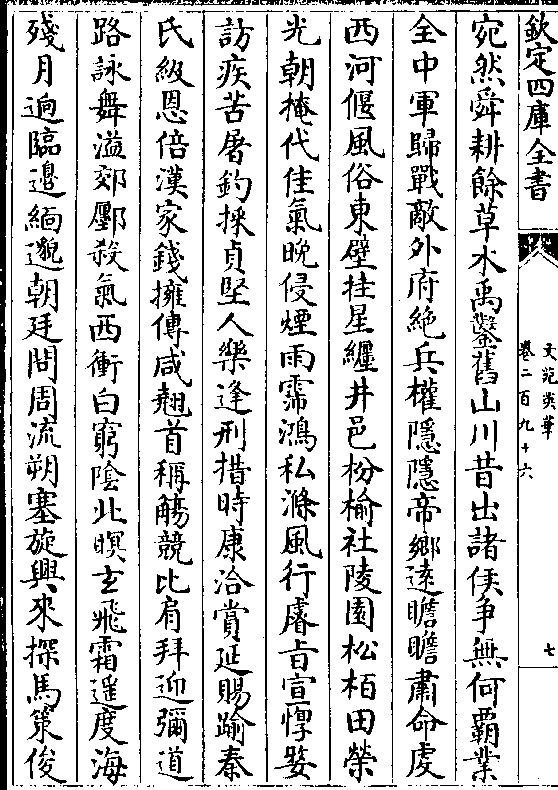 欽定四庫全書
文苑英華
卷二百九十六
七
宛然舜耕餘草木禹鑿舊山川昔出諸侯爭無何霸業
全中軍歸戰敵外府絶兵權隱隱帝鄉逺瞻瞻肅命虔
西河偃風俗東壁挂星纒井邑枌榆社陵園松栢田榮
光朝掩代佳氣晩侵煙雨霈鴻私滌風行睿旨宣惸嫠
訪疾苦屠釣採貞堅人樂逢刑措時康洽賞延賜踰秦
氏級恩倍漢家錢擁傳咸翹首稱觴競比肩拜迎彌道
路詠舞溢郊鄽殺氣西衝白窮陰北暝玄飛霜遥度海
殘月逈臨邊緬邈朝廷問周流朔塞旋興來探馬策俊